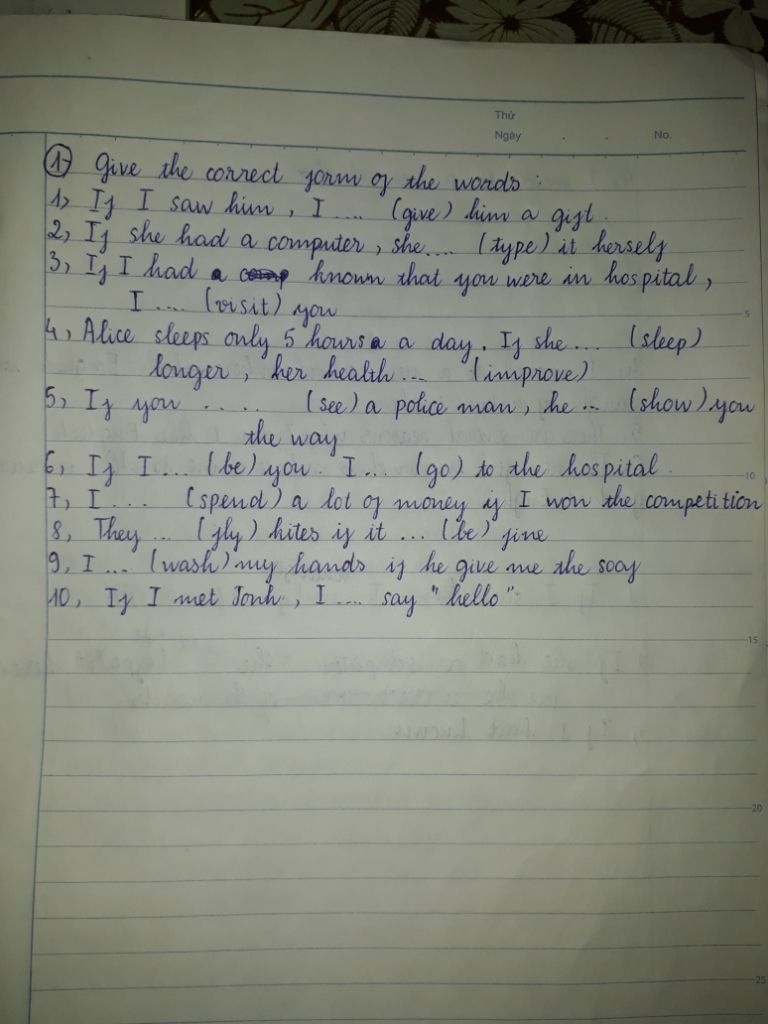 Thứ
Ngày . . No.
1. Give the correct form of the words :
1, If I saw him , I .... (give) him a gift .
2, If she had a computer , she.... (type) it herself
3, If I had known that you were in hospital ,
I .... (visit) you
4, Alice sleeps only 5 hours a day . If she ... (sleep)
longer , her health ... (improve)
5, If you ..... (see) a police man , he ... (show) you
the way
6, If I ... (be) you . I ... (go) to the hospital .
7, I ... (spend) a lot of money if I won the competition
8, They ... (fly) kites if it ... (be) fine
9, I ... (wash) my hands if he give me the soap
10, If I met Jonh , I .... say "hello"
5
10
15
20
25